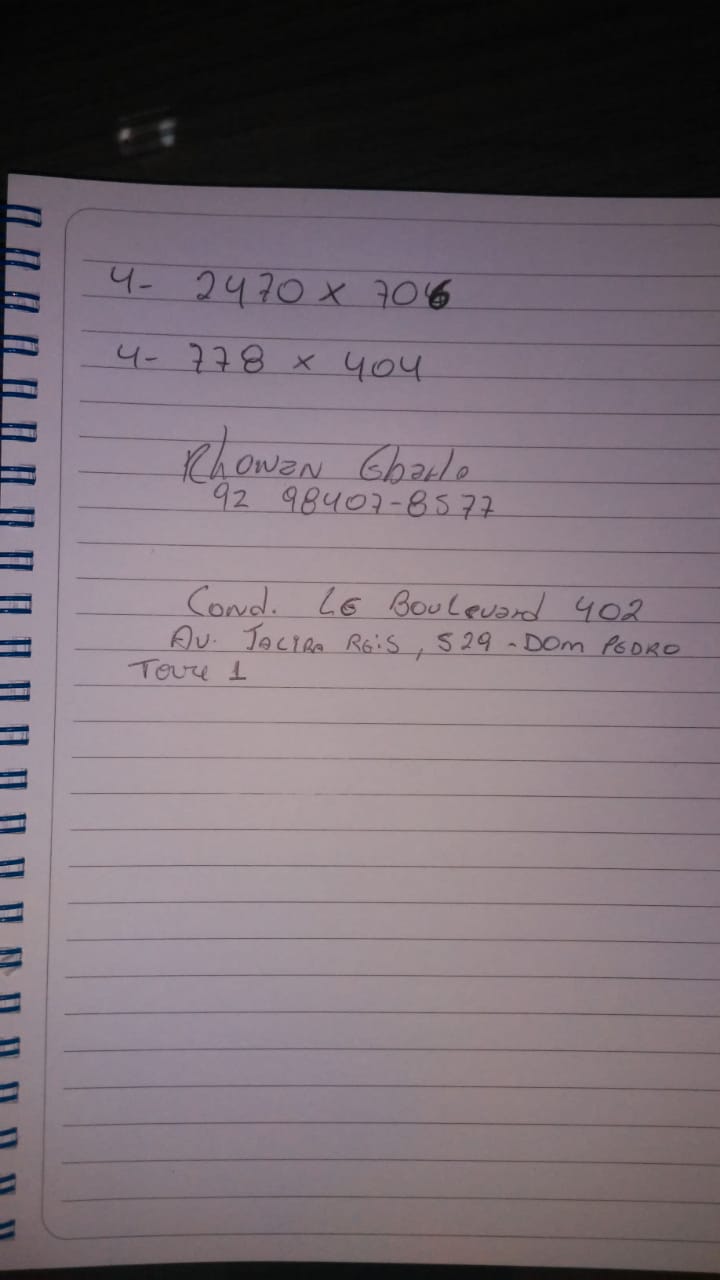 4- 2470 x 706
4- 778 x 404
Rhowan
92 98407-8577
Cond. Le Boulevard 402
Av. JACIRA REiS, 529 - DOM PEDRO
Torre 1